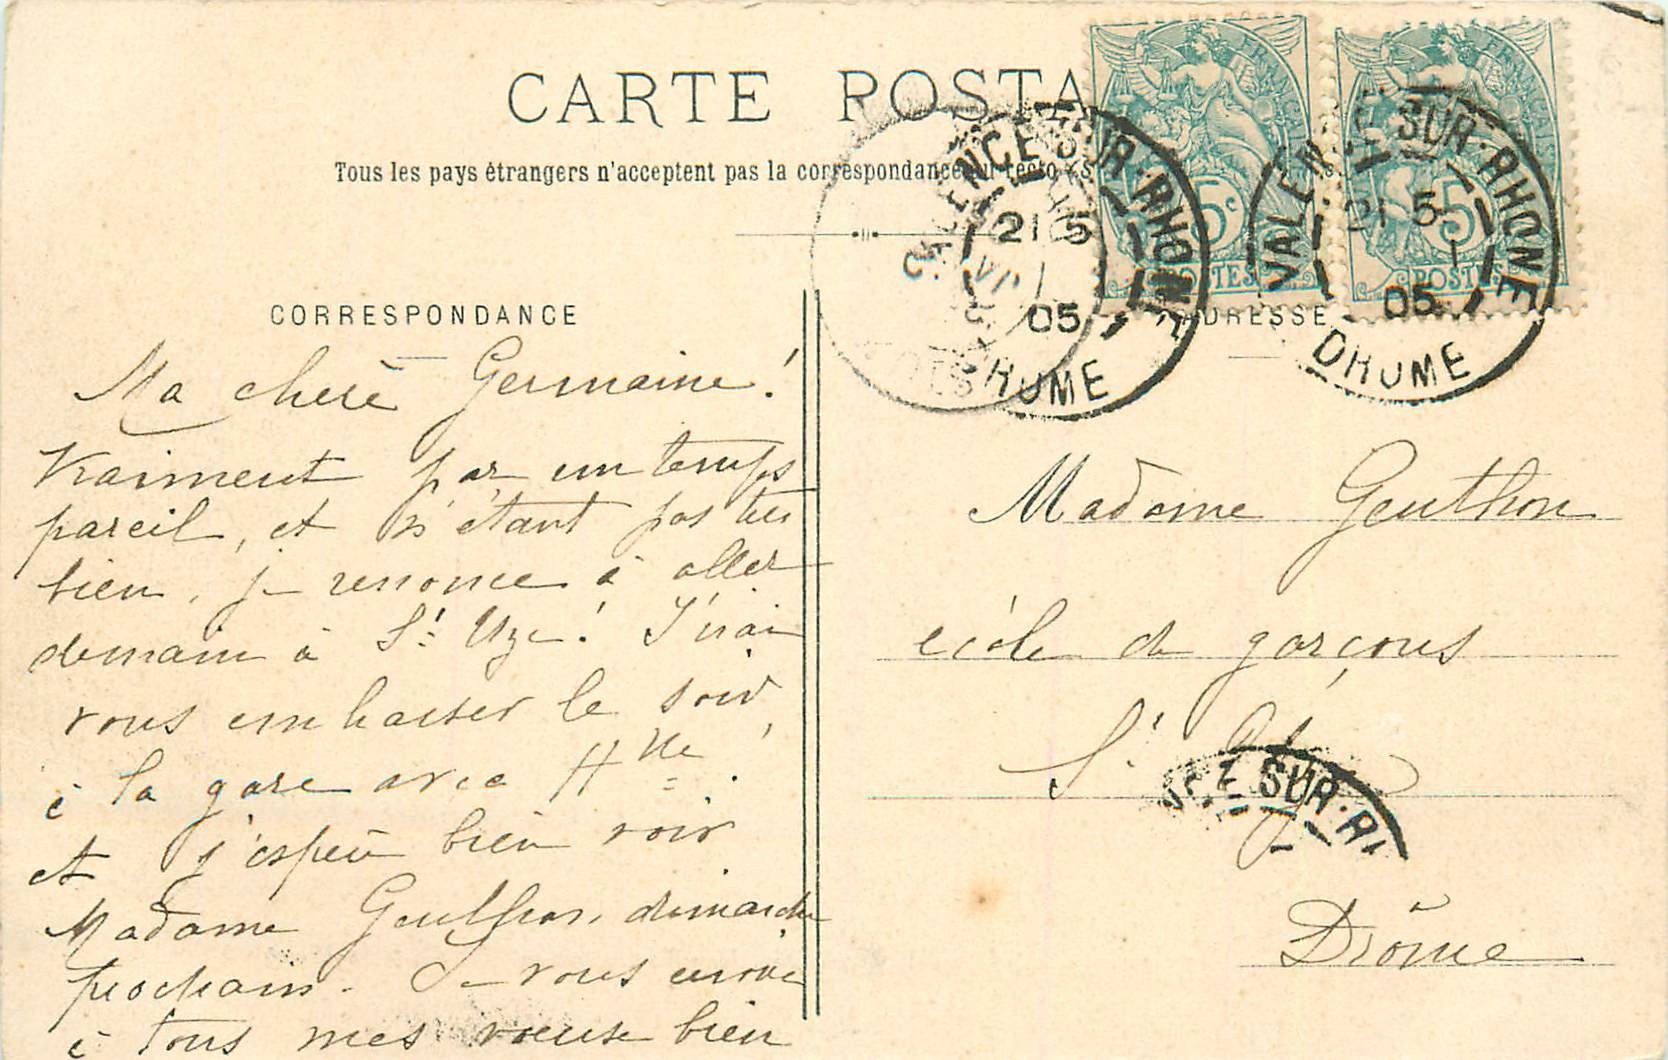 CARTE POSTA
Tous les pays étrangers n'acceptent pas la correspondance au recto
FRANÇAISE
5c
POSTES
5
POSTES
VALENCE-SUR-RHONE
21 5
05
DROME
VALENCE-SUR-RHONE
21 5
05
DROME
CORRESPONDANCE
ADRESSE
Ma chère Germaine !
Vraiment par un temps
pareil, et n'étant pas très
bien, je renonce à aller
demain à St Uze ! J'irai
vous embrasser le soir,
à la gare avec Mlle
et j'espère bien voir
Madame Genthon, dimanche
prochain. Je vous envoie
à tous mes vœux bien
Madame Genthon
école de garçons
St Uze
CE-SUR-RH
Drôme